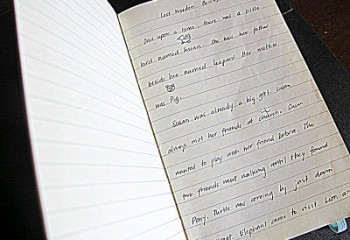 Lost Wooden
Once upon a time, there was a little
bird named Susan. She had her father
beside her named leopard. Her mother
was Pig.
Susan was already a big girl. Susan
always met her friends at church. Susan
wanted to play with her friend Zebra. The
two friends went walking until they found
Pony. Turtle was coming by just down
Elephant came to visit. Lion